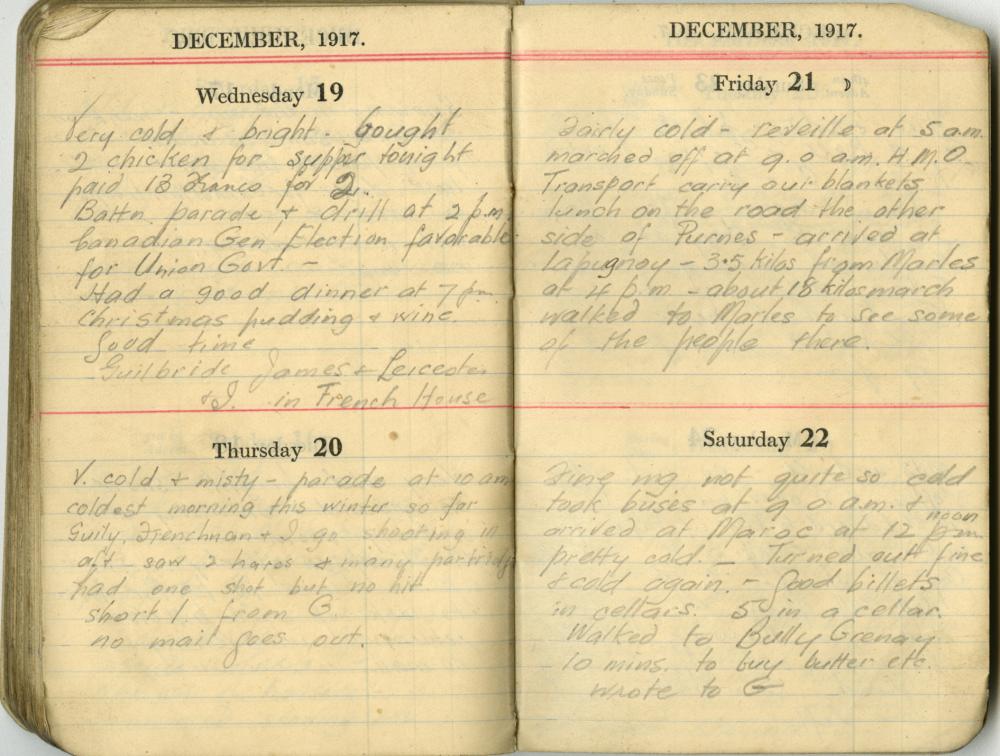 DECEMBER, 1917.
Wednesday 19
Very cold & bright - Bought
2 chicken for supper tonight
paid 18 Francs for 2.
Battn parade & drill at 2 p.m.
Canadian Gen Election favorable
for Union Govt. -
Had a good dinner at 7 pm
Christmas pudding & wine.
Good time
Guilbride James & Leicester
& I. in French House
Thursday 20
V. cold & misty - parade at 10 am
coldest morning this winter so far
Guily, Frenchman & I go shooting in
aft - saw 2 hares & many partridge
had one shot but no hit
short l. from G.
no mail goes out.
DECEMBER, 1917.
Friday 21
Fairly cold - reveille at 5 a.m.
marched off at 9.0 a.m. H.M.O.
Transport carry our blankets
lunch on the road the other
side of Purnes - arrived at
Lapugnoy - 3.5 kilos from Marles
at 4 p.m - about 18 kilos march
walked to Marles to see some
of the people there.
Saturday 22
Fine mg not quite so cold
took buses at 9 0 a.m. &
arrived at Maroc at 12 noon
pretty cold. - Turned out fine
& cold again. - Good billets
in cellars. 5 in a cellar.
Walked to Bully Grenay
10 mins. to buy butter etc.
wrote to G